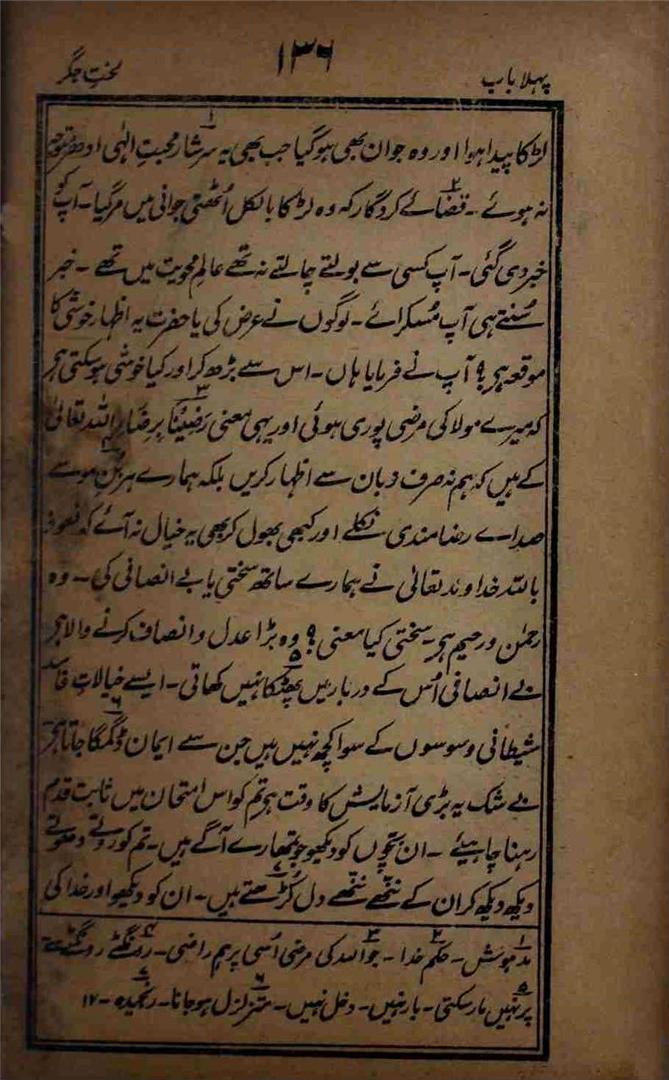 پہلا باب
۱۳۶
لخت جگر
لڑکا پیدا ہوا اور وہ جوان بھی ہو گیا جب بھی یہ سرشار۱ محبتِ الٰہی ادھر متوجہ
نہ ہوئے۔ قضائے۲ کردگار کہ وہ لڑکا بالکل اُٹھتی جوانی میں مر گیا۔ آپ کو
خبر دی گئی۔ آپ کسی سے بولتے چالتے نہ تھے عالمِ محویت میں تھے۔ خبر
سُنتے ہی آپ مُسکرائے۔ لوگوں نے عرض کی یا حضرت یہ اظہارِ خوشی کا
موقعہ ہے؟ آپ نے فرمایا ہاں۔ اس سے بڑھ کر اور کیا خوشی ہو سکتی ہے
کہ میرے مولا کی مرضی پوری ہوئی اور یہی معنی رَضِینَا۳ بِرِضَاءِ اللہ تعالیٰ
کے ہیں کہ ہم نہ صرف زبان سے اظہار کریں بلکہ ہمارے ہر بُنِ۴ مو سے
صداے رضامندی نکلے اور کبھی بھول کر بھی یہ خیال نہ آئے کہ نعوذ
باللہ خداوند تعالیٰ نے ہمارے ساتھ سختی یا بے انصافی کی۔ وہ
رحمٰن و رحیم ہے۔ سختی کیا معنی؟ وہ بڑا عدل و انصاف کرنے والا ہے
بے انصافی اُس کے دربار میں پھٹکا۵ نہیں کھاتی۔ ایسے خیالاتِ فاسد
شیطانی وسوسوں کے سوا کچھ نہیں ہیں جن سے ایمان ڈگمگا۶ جاتا ہے
بے شک یہ بڑی آزمایش کا وقت ہے تم کو اس امتحان میں ثابت قدم
رہنا چاہیئے۔ ان بچّوں کو دیکھو جو تمھارے آگے ہیں۔ تم کو روتے دھوتے
دیکھ دیکھ کر ان کے ننّھے ننّھے دل کُڑھتے۷ ہیں۔ ان کو دیکھو اور خدا کی
۱ مدہوش۔ ۲ حکم خدا۔ ۳ جو اللہ کی مرضی اُسی پر ہم راضی۔ ۴ رونگٹے رونگٹے سے
۵ پر نہیں مار سکتی۔ بار نہیں۔ دخل نہیں۔ ۶ متزلزل ہو جانا۔ ۷ رنجیدہ۔ ۱۲